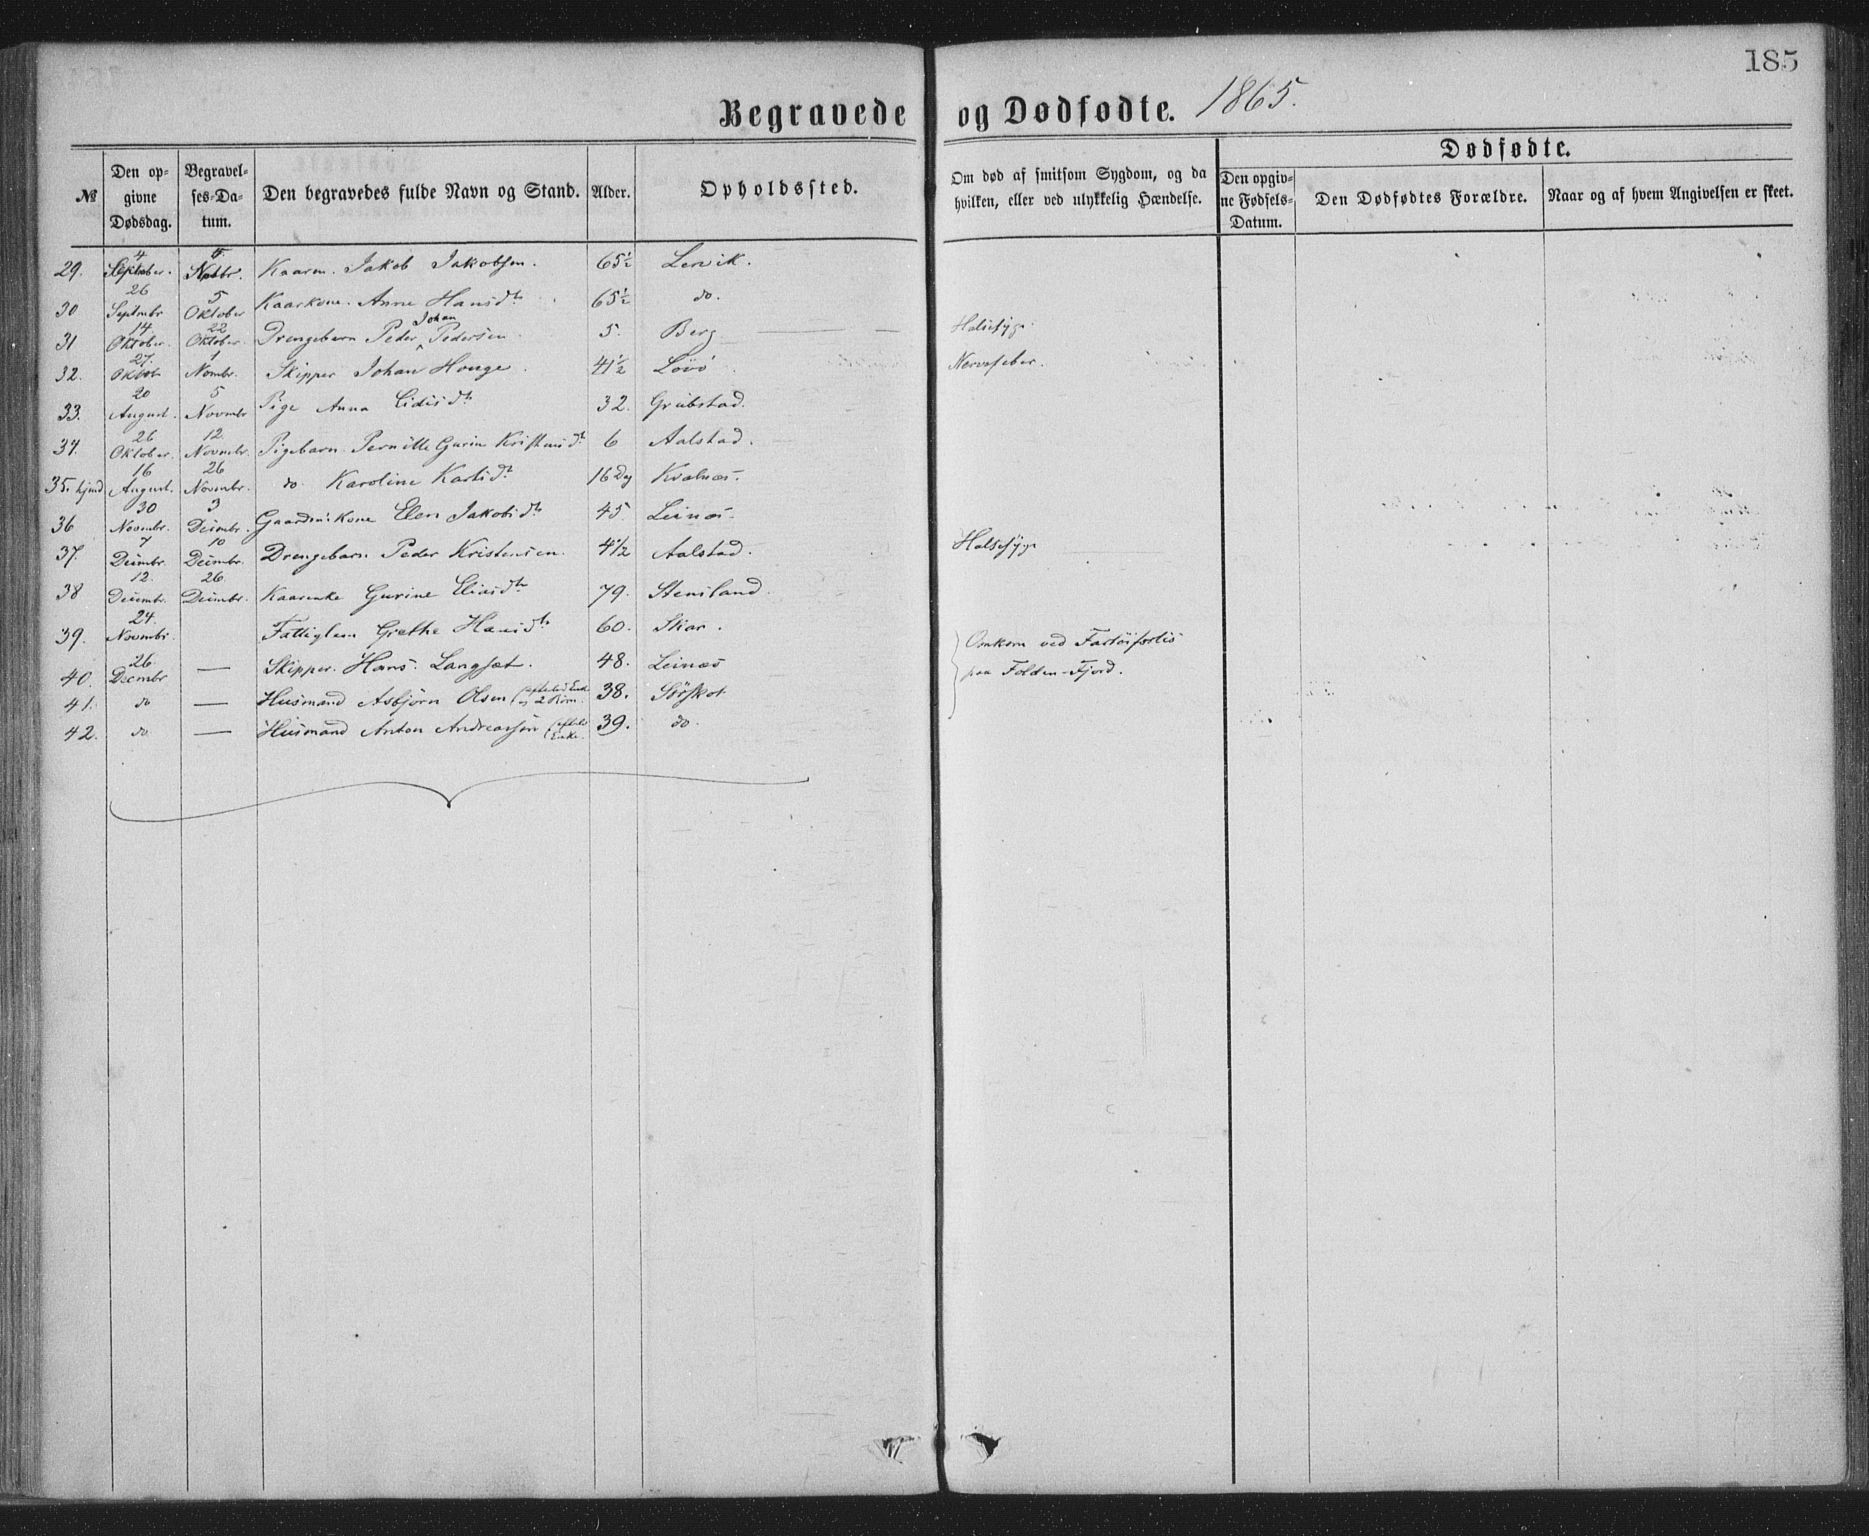 185
Begravede og Dødfødte. 1865.
№ Den opgivne Dødsdag. Begravelses-Datum. Den begravedes fulde Navn og Stand. Alder. Opholdssted. Om død af smitsom Sygdom, og da hvilken, eller ved ulykkelig Hændelse. Dødfødte. Den opgivne Fødsels-Datum. Den Dødfødtes Forældre. Naar og af hvem Angivelsen er skeet.
29. 4 Jakob Jakobsen. 65½ Lervik.
30 26 Septmbr 5 Oktober Kaarkone. Anne Hansdtr 65½ do.
31 14 Oktober. 22 Oktober. Drengebarn Peder Johan Pedersen. 5. Berg Halsesyge
32. 27. Oktobr 1 Novmbr. Skipper Johan Houge. 41½ Løvø Nervefeber.
33. 20 August. 5 Novmbr Pige Anna 32. Grubstad.
34. 26 Oktober. 12 Novmbr. Pigebarn Pernille Gurine 6 Aalstad.
35. hjmd 16 August. 26 Novmbr. do Karoline 16 Dg Kvalnæs.
36 30 Novmbr. 3 Decmbr. Gaardmkone Elen Jakobsdtr 45 Leinæs
37. 7 Decmbr. 10 Decmbr. Drengebarn Peder Kristensen. 4½ Aalstad. Halsesyge
38 12. Decmbr. 26. Decmbr. Kaarenke Gurine Eliasdtr 79. Stensland.
39. 24. Novmbr. Fattiglem Grethe Hansdtr 60. Skar.
Omkom ved Fartøiforlis
paa Folden-Fjord.
40. 26. Decmbr — Skipper. Hans. Langset. 48. Leinæs
41. do — Husmand Asbjørn Olsen (efterlod Enke og 2 Børn. 38.
42. do. — Husmand Anton Andreassen (efterlod Enke. 39. do.